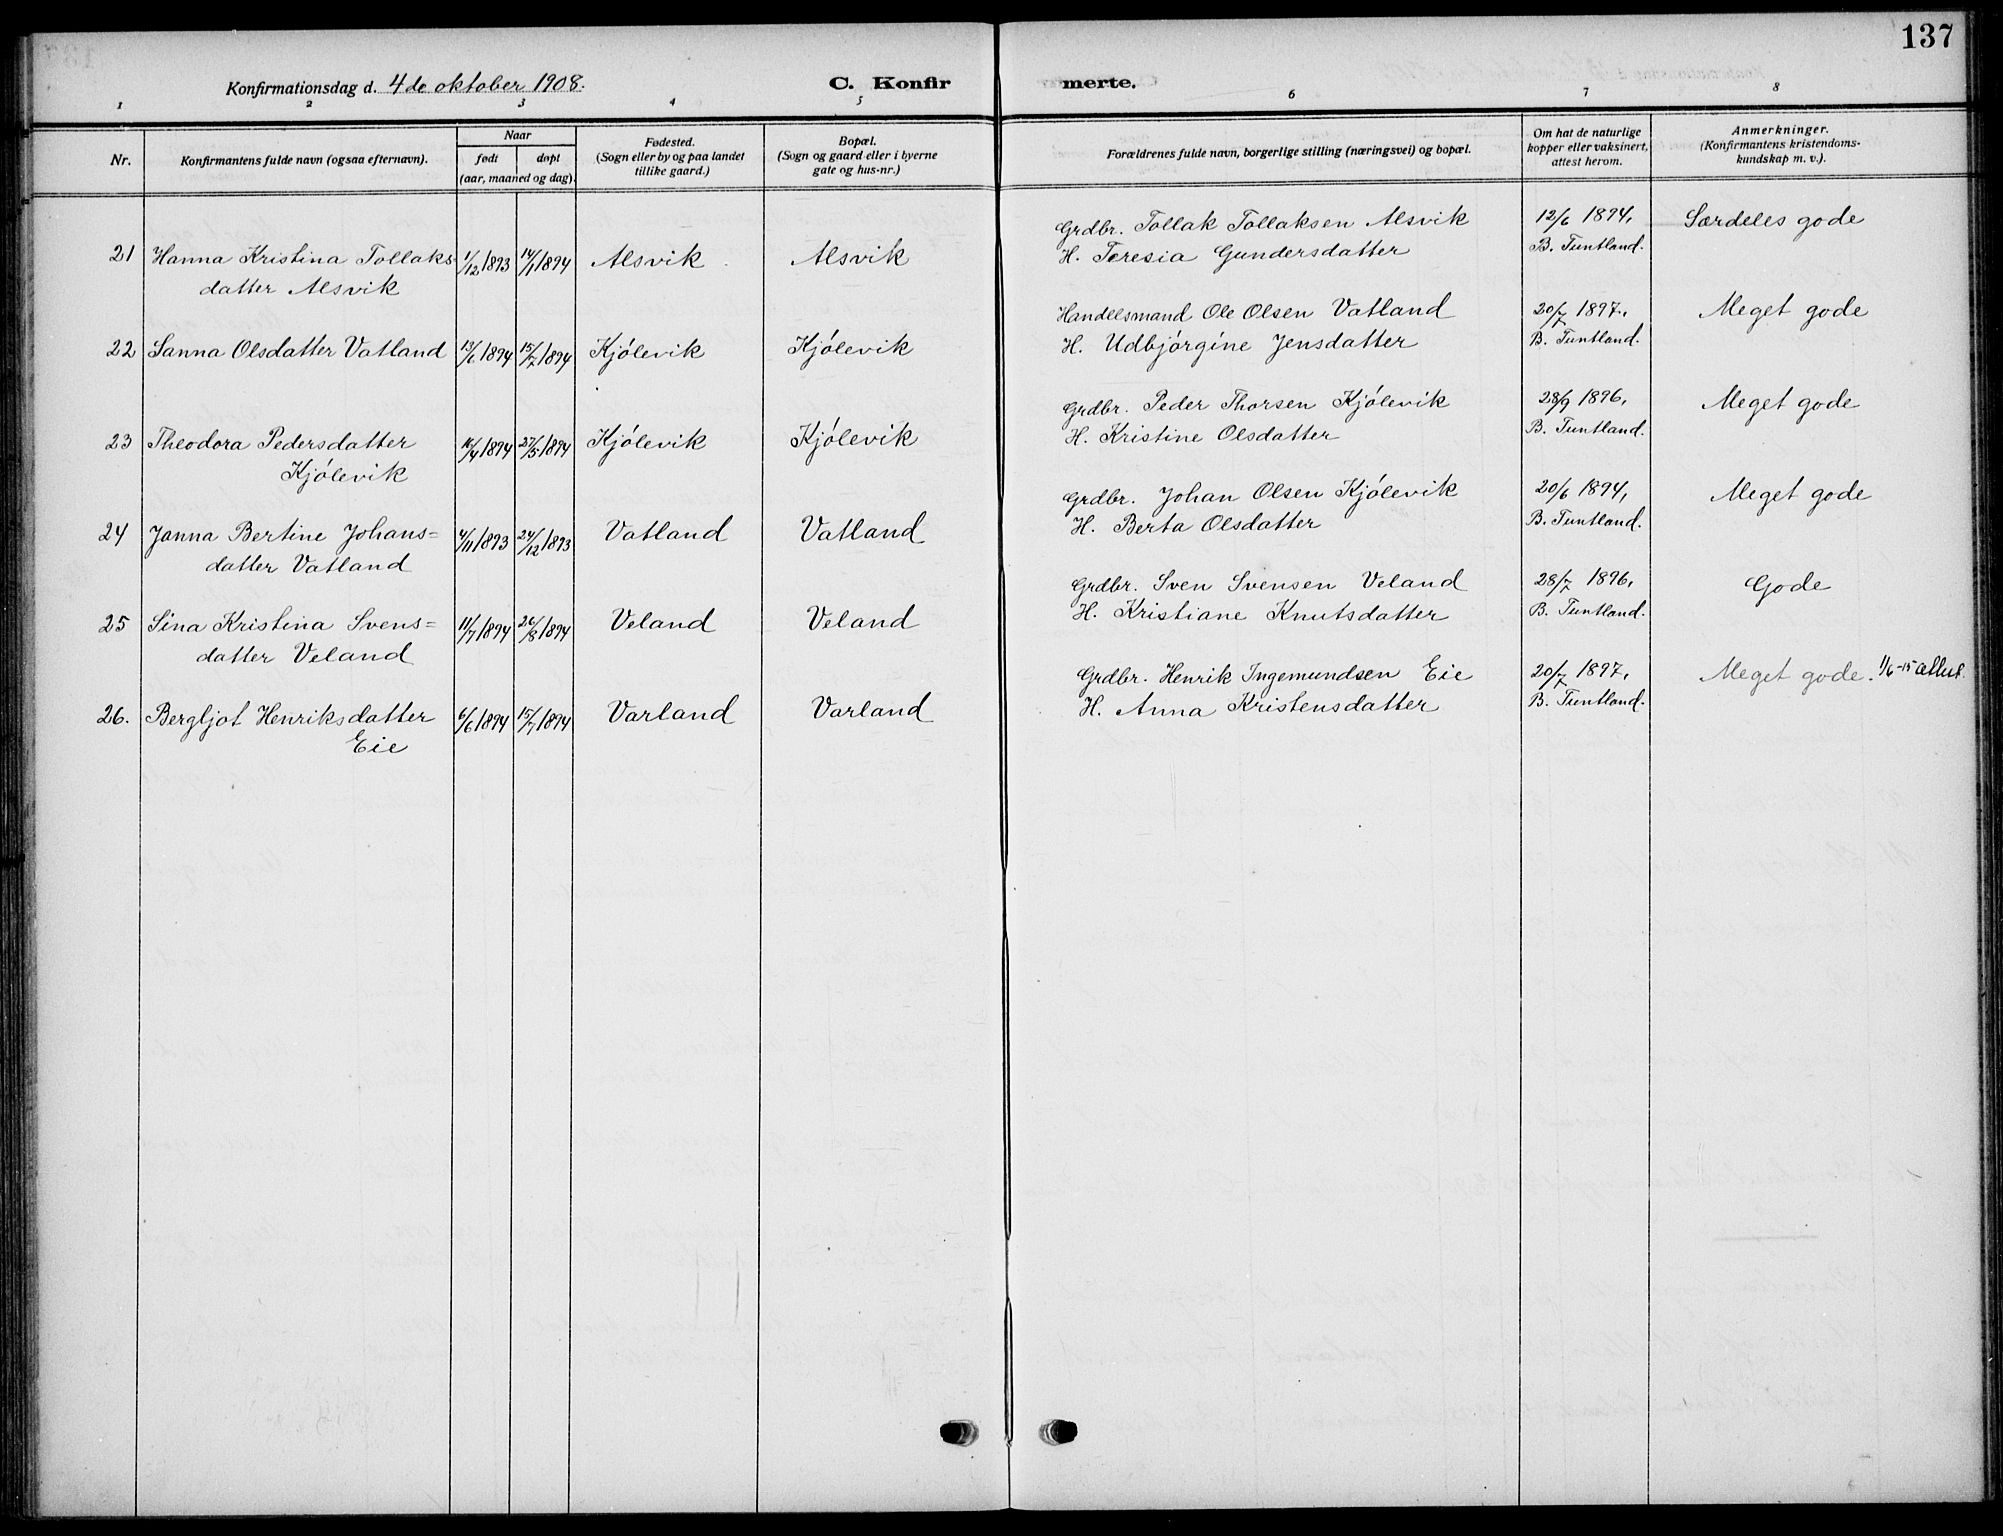 137
Konfirmationsdag d. 4de oktober 1908.
C. Konfirmerte.
1 2 3 4 5 6 7 8
Nr.
Konfirmantens fulde navn (ogsaa efternavn).
Naar
født
døpt
(aar, maaned og dag).
Fødested.
(Sogn eller by og paa landet
tillike gaard.)
Bopæl.
(Sogn og gaard eller i byerne
gate og hus-nr.)
Forældrenes fulde navn, borgerlige stilling (næringsvei) og bopæl.
Om hat de naturlige
kopper eller vaksinert,
attest herom.
Anmerkninger.
(Konfirmantens kristendoms-
kundskap m. v.).
21 Hanna Kristina Tollaks- 1/12 1893 14/1 1894 Alsvik Alsvik
datter Alsvik
Grdbr. Tollak Tollaksen Alsvik 12/6 1894, Særdeles gode
H. Teresia Gundersdatter B. Tuntland.
22 Sanna Olsdatter Vatland 13/6 1894 15/7 1894 Kjølevik Kjølevik
Handelsmand Ole Olsen Vatland 20/7 1897, Meget gode
H. Udbjørgine Jensdatter B. Tuntland.
23 Theodora Pedersdatter 16/4 1894 27/5 1894 Kjølevik Kjølevik
Kjølevik
Grdbr. Peder Thorsen Kjølevik 28/9 1896, Meget gode
H. Kristine Olsdatter B. Tuntland.
24 Janna Bertine Johans= /11 1893 24/12 1893 Vatland Vatland
datter Vatland
Grdbr. Johan Olsen Kjølevik 20/6 1894, Meget gode
H. Berta Olsdatter B. Tuntland.
25 Sina Kristina Svens= 11/7 1894 26/8 1894 Veland Veland
datter Veland
Grdbr. Sven Svensen Veland 28/7 1896, Gode
H. Kristiane Knutsdatter B. Tuntland.
26. Bergljot Henriksdatter 6/6 1894 15/7 1894 Varland Varland
Eie
Grdbr. Henrik Ingemundsen Eie 20/7 1897, Meget gode. 1/6-15 attest.
H. Anna Kristensdatter B. Tuntland.